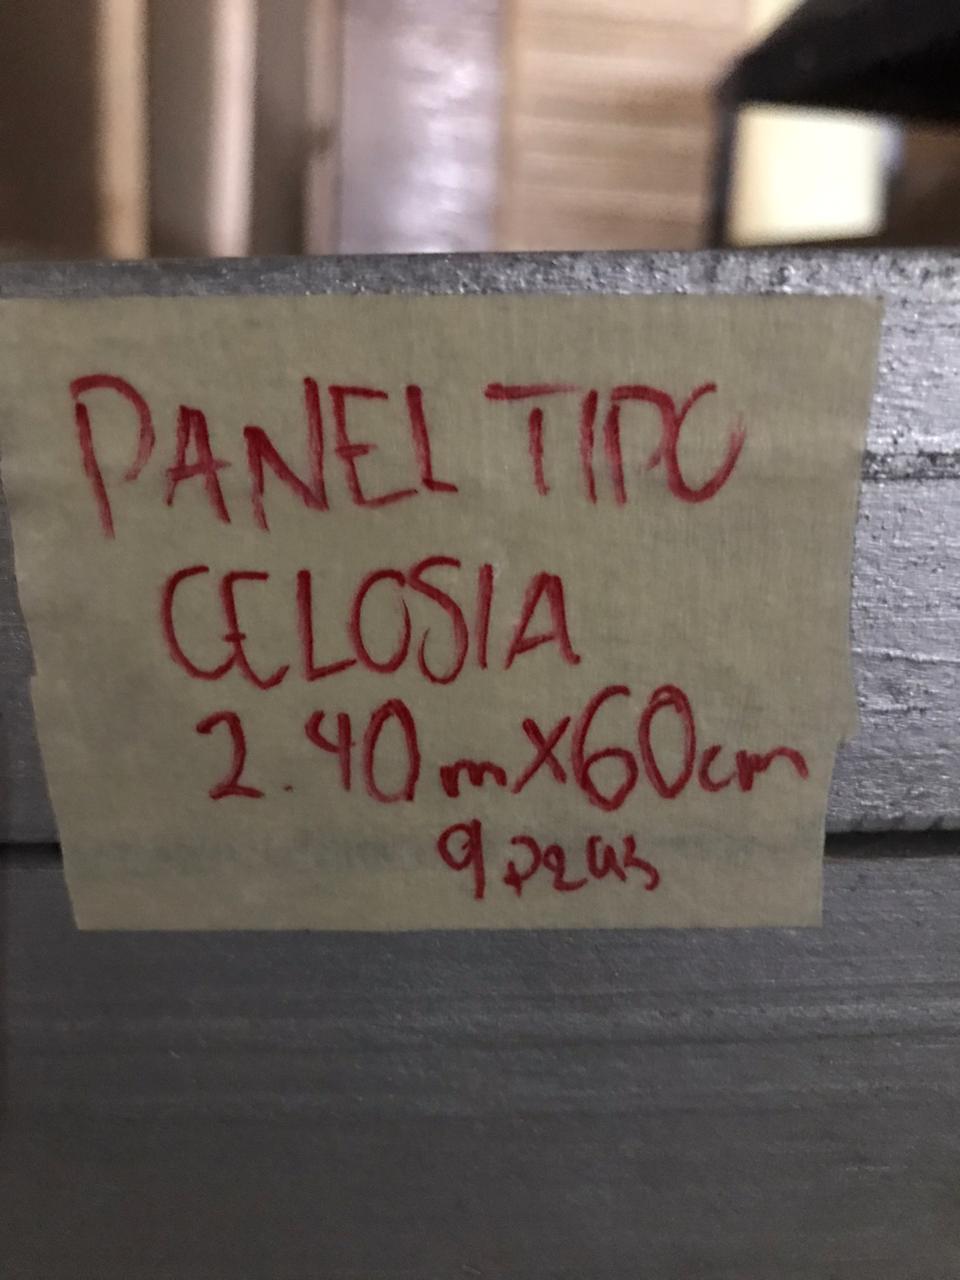 PANEL TIPO
CELOSIA
2.40mx60cm
9 pzas